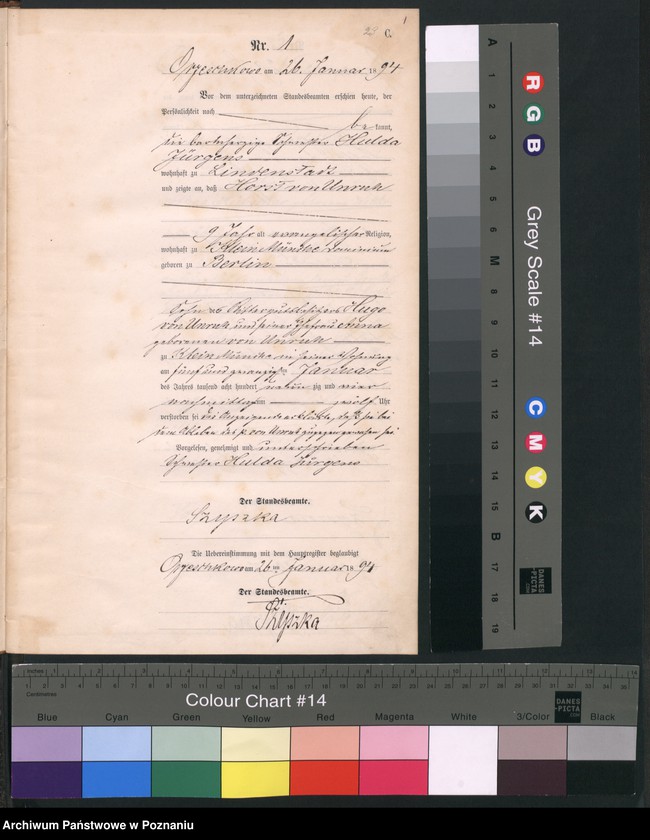 23 C. 1
Nr. 1
Orzeschkowo am 26. Januar 1894
Vor dem unterzeichneten Standesbeamten erschien heute, der
Persönlichkeit nach
be kannt,
die barmherzige Schwester Hulda
Jürgens
wohnhaft zu Lindenstadt
und zeigte an, daß Horst von Unruh
9 Jahr alt evangelischer Religion,
wohnhaft zu Klein Münche dominium
geboren zu Berlin
Sohn des Rittergutsbesitzers Hugo
von Unruh und seiner Ehefrau Anna
geborenen von Unruh
zu Klein Münche in seiner Wohnung
am fünf und zwanzigsten Januar
des Jahrs tausend acht hundert neun zig und vier
nachmittags um zwölf Uhr
verstorben sei. Die Anzeigende erklärte, daß sie bei
dem Ableben des p. von Unruh zugegen gewesen sei
Vorgelesen, genehmigt und unterschrieben
Schwester Hulda Jürgens
Der Standesbeamte.
Szyszka
Die Uebereinstimmung mit dem Hauptregister beglaubigt
Orzeschkowo am 26 ten Januar 1894
Der Standesbeamte.
Szyszka
A 1 2 3 4 5 6 M 8 9 10 11 12 13 14 15 B 17 18 19
R G B
Grey Scale #14
C M Y K
DANES
-PICTA
.COM
Inches 1 2 3 4 5 6 7 8 9 10 11 12 13 14
Centimetres
Colour Chart #14
DANES
-PICTA
.COM
Blue Cyan Green Yellow Red Magenta White 3/Color Black
Archiwum Państwowe w Poznaniu